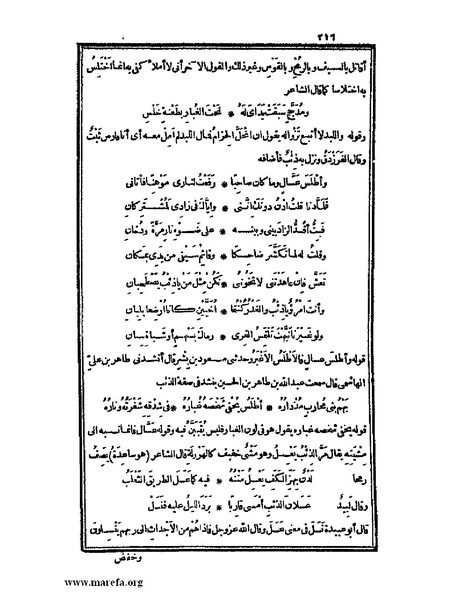 ٢١٦
أقاتل بالسيف وبالرمح وبالقوس وغير ذلك والقول الآخر أني لا أملأ كفي به انما أختلس
به اختلاسا كما قال الشاعر
ومدجج سبقت يداي له * تحت الغبار بطعنة خلس
وقوله واللبد لا أتبع تزواله يقول ان انحل الحزام فمال اللبد لم أمل معه أي أنا فارس ثبت
وقال الفرزدق ونزل به ذئب فأضافه
وأطلس عسال وما كان صاحبا * رفعت لناري موهنا فأتاني
فلما دنا قلت ادن دونك انني * واياك في زادي لمشتركان
فبت أقد الزاد بيني وبينه * على ضوء نار مرة ودخان
وقلت له لما تكشر ضاحكا * وقائم سيفي من يدي بمكان
تعش فان عاهدتني لا تخونني * نكن مثل من ياذئب يصطحبان
وأنت امرؤ ياذئب والغدر كنتما * أخيين كانا أرضعا بلبان
ولو غيرنا نبهت تلتمس القرى * رماك بسهم أو شباة سنان
قوله وأطلس عسال فالأطلس الأغبر وحدثني مسعود بن بشر قال أنشدني طاهر بن علي
الهاشمي قال سمعت عبد الله بن طاهر بن الحسين ينشد في صفة الذئب
بهم بني محارب مزداره * أطلس يخفي شخصه غباره * في شدقه شفرته وناره
قوله يخفي شخصه غباره يقول هو في لون الغبار فليس يتبين فيه وقوله عسال فانما نسبه الى
مشيته يقال مر الذئب يعسل وهو مشي خفيف كالهرولة قال الشاعر (هو ساعدة) يصف
رمحا لدن بهز الكف يعسل متنه * فيه كما عسل الطريق الثعلب
وقال لبيد عسلان الذئب أمسى قاربا * برد الليل عليه فنسل
قال أبو عبيدة نسل في معنى عسل وقال الله عز وجل فاذا هم من الأجداث الى ربهم ينسلون
وخفض
www.marefa.org